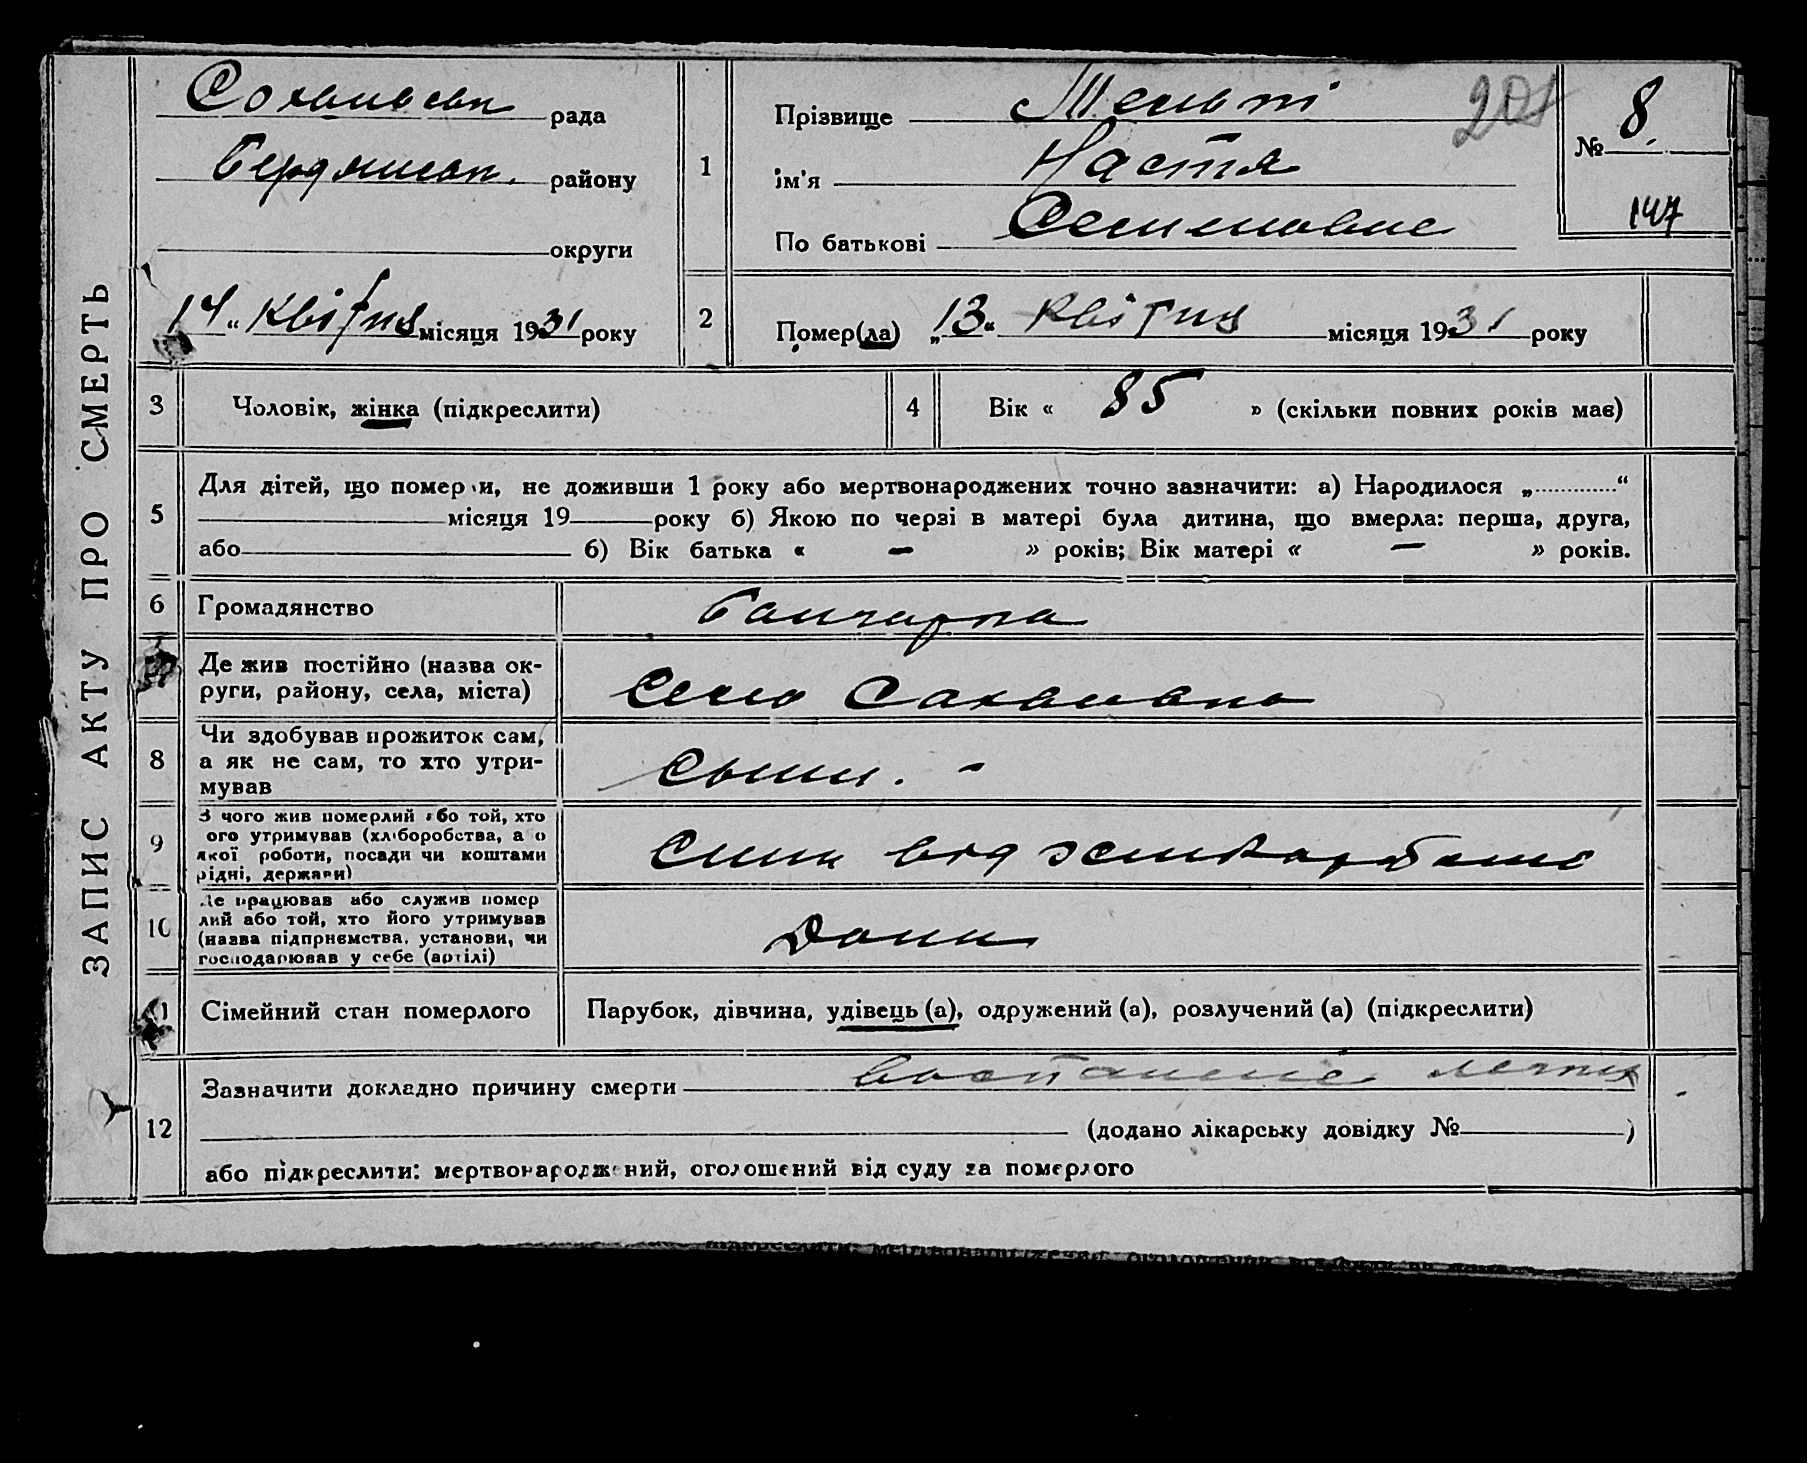 ЗАПИС АКТУ ПРО СМЕРТЬ
рада
району
округи
14 " Квітня місяця 1931 року
1
Прізвище
ім'я Настя
По батькові
201
№ 8.
147
2
Помер(ла) „ 13 " Квітня місяця 1931 року
3
Чоловік, жінка (підкреслити)
4
Вік « 85 » (скільки повних років мав)
5
Для дітей, що померли, не доживши 1 року або мертвонароджених точно зазначити: а) Народилося „............“
місяця 19 року б) Якою по черзі в матері була дитина, що вмерла: перша, друга,
або б) Вік батька « — » років; Вік матері « — » років.
6
Громадянство
Де жив постійно (назва ок-
руги, району, села, міста)
село
8
Чи здобував прожиток сам,
а як не сам, то хто утри-
мував
9
З чого жив померлий або той, хто
ого утримував (хліборобства, а о
якої роботи, посади чи коштами
рідні, держави)
10
Де працював або служив помер
лий або той, хто його утримував
(назва підприємства, установи, чи
господарював у себе (артілі)
11
Сімейний стан померлого
Парубок, дівчина, удівець (а), одружений (а), розлучений (а) (підкреслити)
12
Зазначити докладно причину смерти воспаление легких
(додано лікарську довідку № )
або підкреслити: мертвонароджений, оголошений від суду за померлого